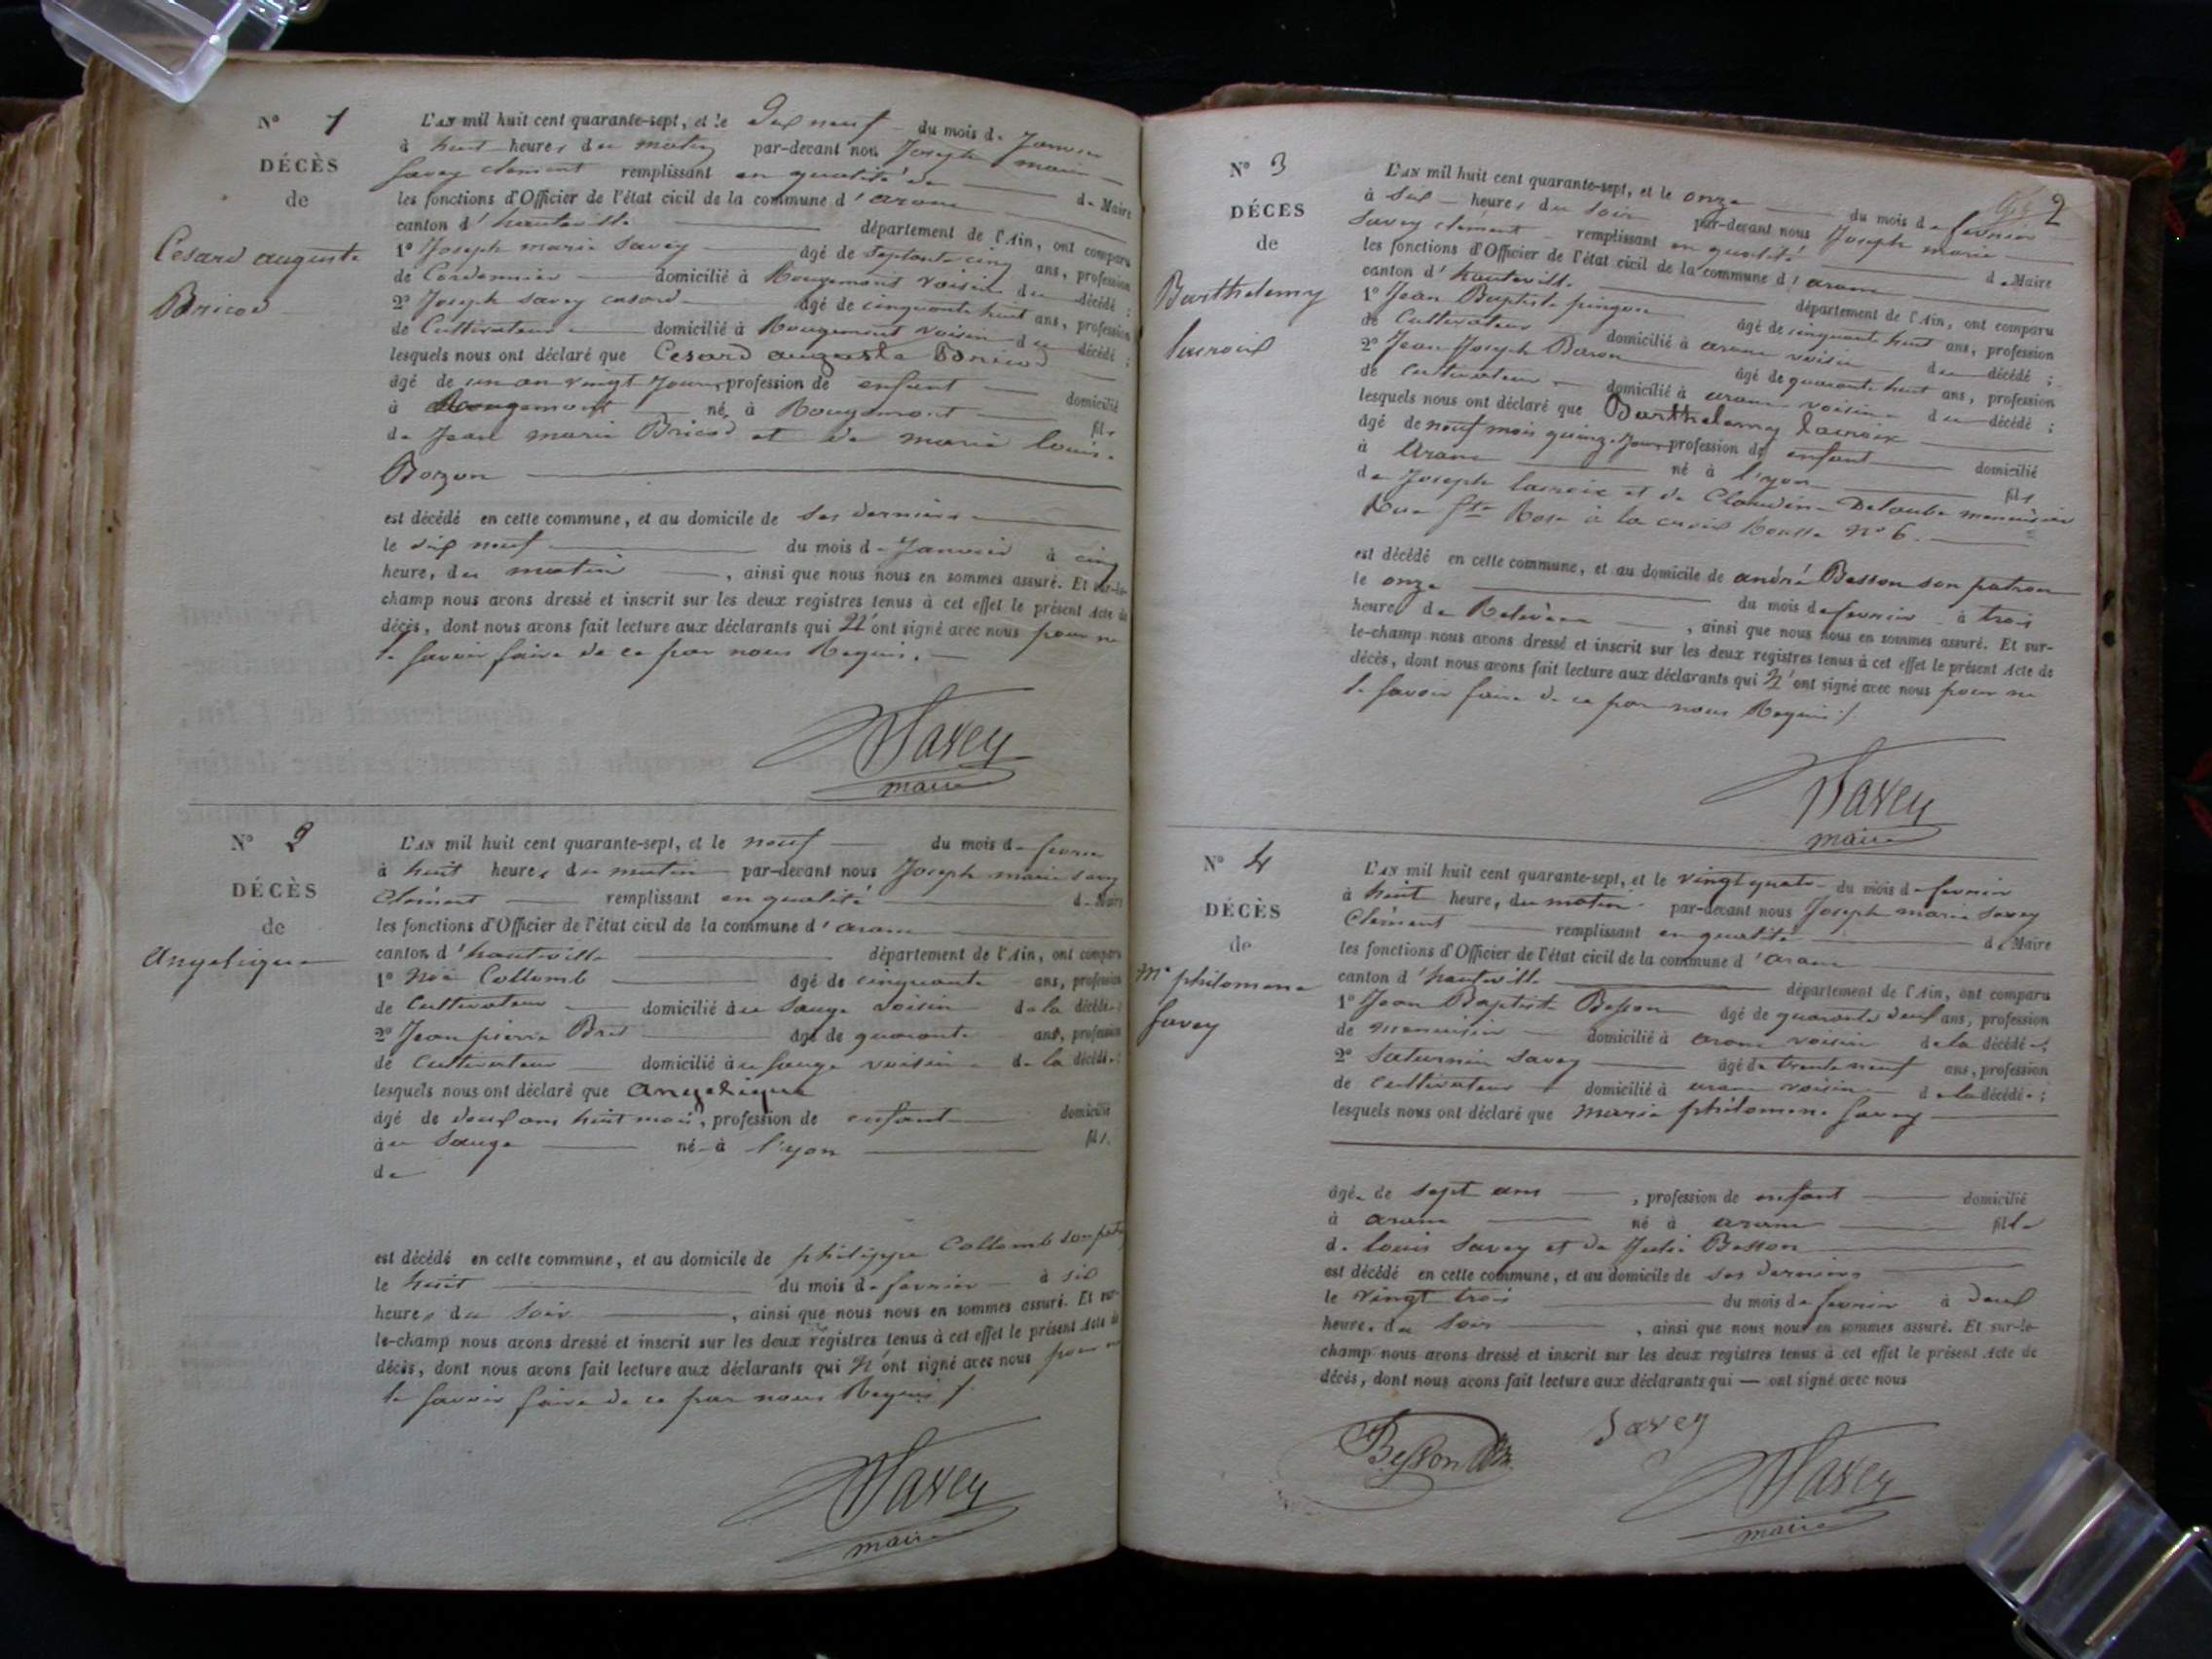 N° 1
DÉCÈS
de
Cesard auguste
Bricod
L'AN mil huit cent quarante-sept, et le dix neuf du mois de Janvier
à huit heures du matin par-devant nous Joseph marie
Savey clement remplissant en qualité de de Maire
les fonctions d'Officier de l'état civil de la commune d'aranc
canton d'hauteville département de l'Ain, ont comparu
1° Joseph marie Savey âgé de septante cinq ans, profession
de Cordonnier domicilié à Rougemont voisin du décédé ;
2° Joseph Savey casard âgé de cinquante huit ans, profession
de Cultivateur domicilié à Rougemont voisin du décédé ;
lesquels nous ont déclaré que Cesard auguste Bricod
âgé de un an vingt Jours, profession de enfant domicilié
à Rougemont né à Rougemont fils
de Jean marie Bricod et de marie louise
Bozon
est décédé en cette commune, et au domicile de ses derniers
le dix neuf du mois de Janvier à cinq
heures du matin , ainsi que nous nous en sommes assuré. Et sur-le-
champ nous avons dressé et inscrit sur les deux registres tenus à cet effet le présent Acte de
décès, dont nous avons fait lecture aux déclarants qui N'ont signé avec nous pour ne
le savoir faire de ce par nous Requis.
Savey
maire
N° 2
DÉCÈS
de
Angelique
L'AN mil huit cent quarante-sept, et le neuf du mois de fevrier
à huit heures du matin par-devant nous Joseph marie Savey
Clément remplissant en qualité de Maire
les fonctions d'Officier de l'état civil de la commune d'aranc
canton d'hauteville département de l'Ain, ont comparu
1° Noé Collomb âgé de cinquante ans, profession
de Cultivateur domicilié au Sauge voisin de la décédée ;
2° Jean pierre Bret âgé de quarante ans, profession
de Cultivateur domicilié au Sauge voisin de la décédée ;
lesquels nous ont déclaré que Angelique
âgé de deux ans huit mois, profession de enfant domicilié
au Sauge née à l'yon fils
de
est décédé en cette commune, et au domicile de philippe Collomb son
le huit du mois de fevrier à six
heures du soir , ainsi que nous nous en sommes assuré. Et sur-
le-champ nous avons dressé et inscrit sur les deux registres tenus à cet effet le présent Acte de
décès, dont nous avons fait lecture aux déclarants qui N'ont signé avec nous pour ne
le savoir faire de ce par nous Requis
Savey
maire
2
N° 3
DÉCÈS
de
Barthelemy
lacroix
L'AN mil huit cent quarante-sept, et le onze du mois de fevrier
à six heures du soir par-devant nous Joseph marie
Savey clément remplissant en qualité de Maire
les fonctions d'Officier de l'état civil de la commune d'aranc
canton d'hauteville département de l'Ain, ont comparu
1° Jean Baptiste pingon âgé de cinquante huit ans, profession
de Cultivateur domicilié à aranc voisin du décédé ;
2° Jean Joseph Baron âgé de quarante huit ans, profession
de cultivateur domicilié à aranc voisin du décédé ;
lesquels nous ont déclaré que Barthelemy lacroix
âgé de neuf mois quinze Jours, profession de enfant domicilié
à Aranc né à l'yon fils
de Joseph lacroix et de Claudine Delaube menuisier
Rue Ste Rose à la croix Rousse N° 6.
est décédé en cette commune, et au domicile de andré Besson son patron
le onze du mois de fevrier à trois
heures de Relevée , ainsi que nous nous en sommes assuré. Et sur-
le-champ nous avons dressé et inscrit sur les deux registres tenus à cet effet le présent Acte de
décès, dont nous avons fait lecture aux déclarants qui N'ont signé avec nous pour ne
le savoir faire de ce par nous Requis
Savey
maire
N° 4
DÉCÈS
de
Me philomene
Savey
L'AN mil huit cent quarante-sept, et le vingt quatre du mois de fevrier
à huit heures du matin par-devant nous Joseph marie Savey
Clément remplissant en qualité de Maire
les fonctions d'Officier de l'état civil de la commune d'aranc
canton d'hauteville département de l'Ain, ont comparu
1° Jean Baptiste Besson âgé de quarante deux ans, profession
de menuisier domicilié à aranc voisin de la décédée ;
2° Saturnin Savey âgé de trente neuf ans, profession
de cultivateur domicilié à aranc voisin de la décédée ;
lesquels nous ont déclaré que marie philomene Savey
âgée de sept ans , profession de enfant domicilié
à aranc né à aranc fille
de louis Savey et de Julie Besson
est décédé en cette commune, et au domicile de ses derniers
le vingt trois du mois de fevrier à deux
heures du soir , ainsi que nous nous en sommes assuré. Et sur-le-
champ nous avons dressé et inscrit sur les deux registres tenus à cet effet le présent Acte de
décès, dont nous avons fait lecture aux déclarants qui — ont signé avec nous
Besson Savey
Savey
maire